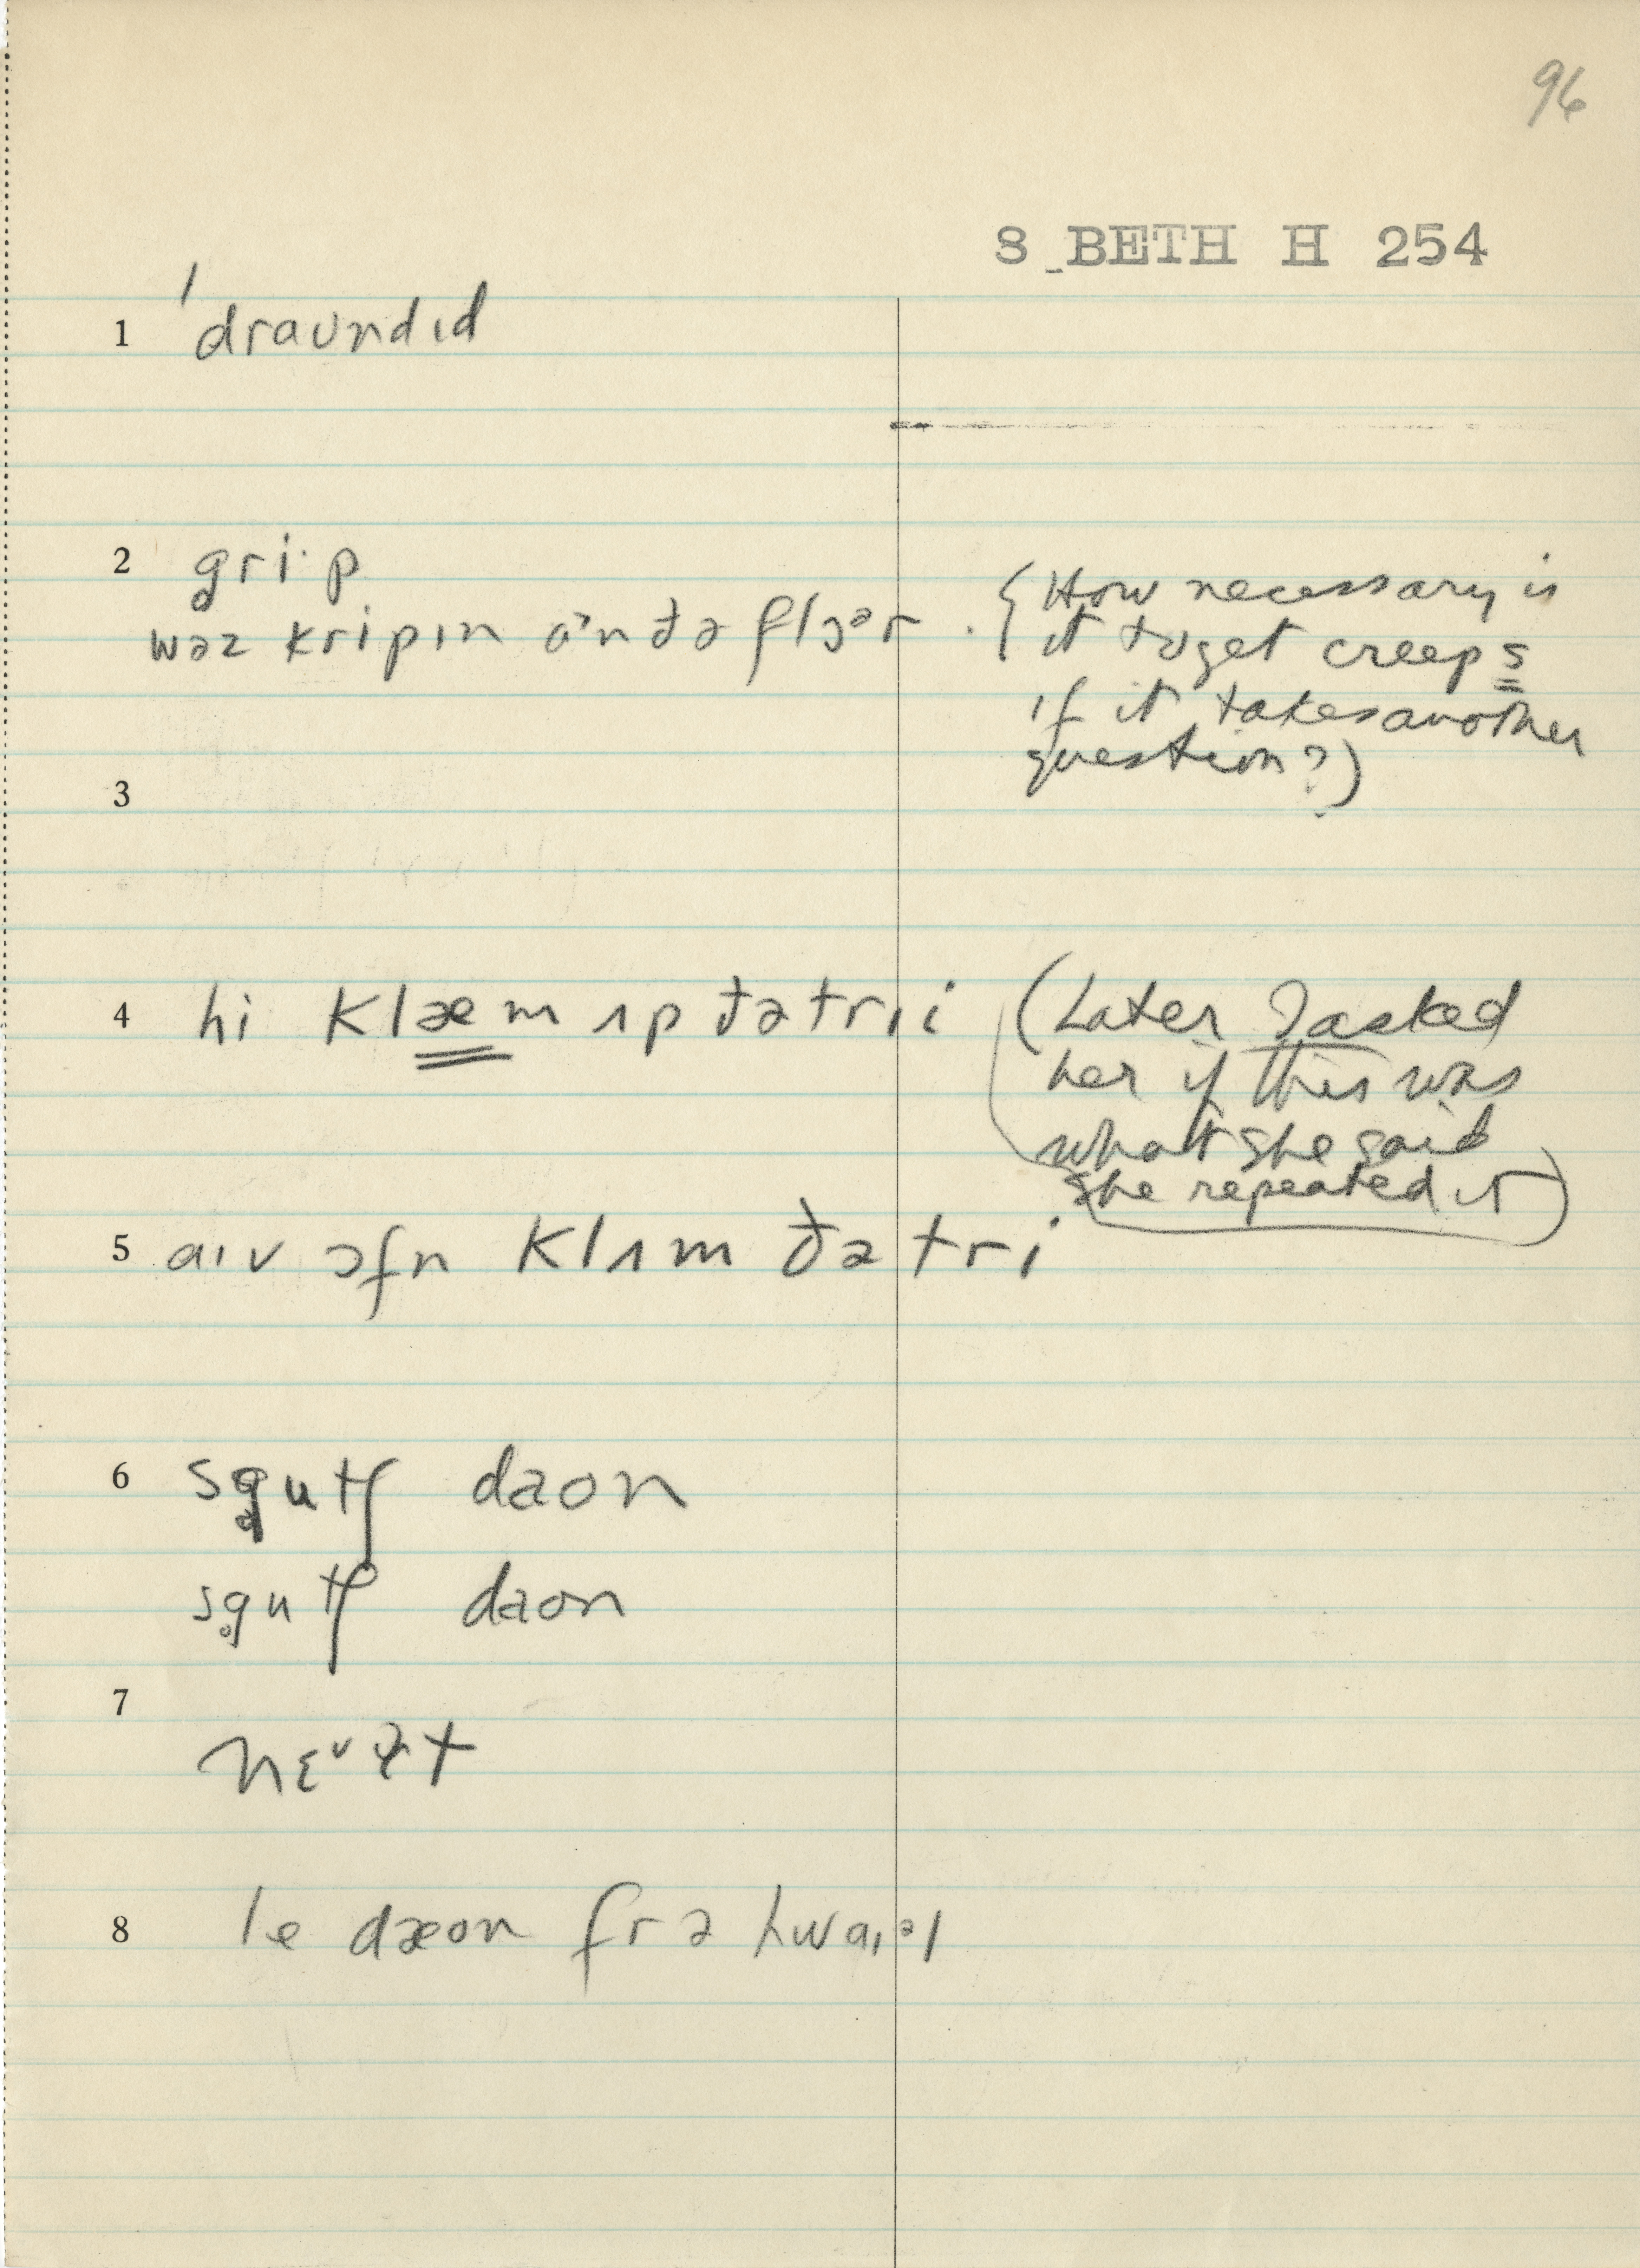 96
S BETH H 254
1 ˈdraʊndɪd
2 gri·p
wəz kripɪn ɒ˃n ðə flɔᵊr. (How necessary is
it to get creeps
if it takes another
question?)
3
4 hi klæm ʌp ðə trɪi (Later I asked
her if this was
what she said
she repeated it)
5 aɪv ɔfn klʌm ðə tri
6 sg̥utʃ daon
sg̥utʃ daon
7
8 le dæon frə hwaɪəl